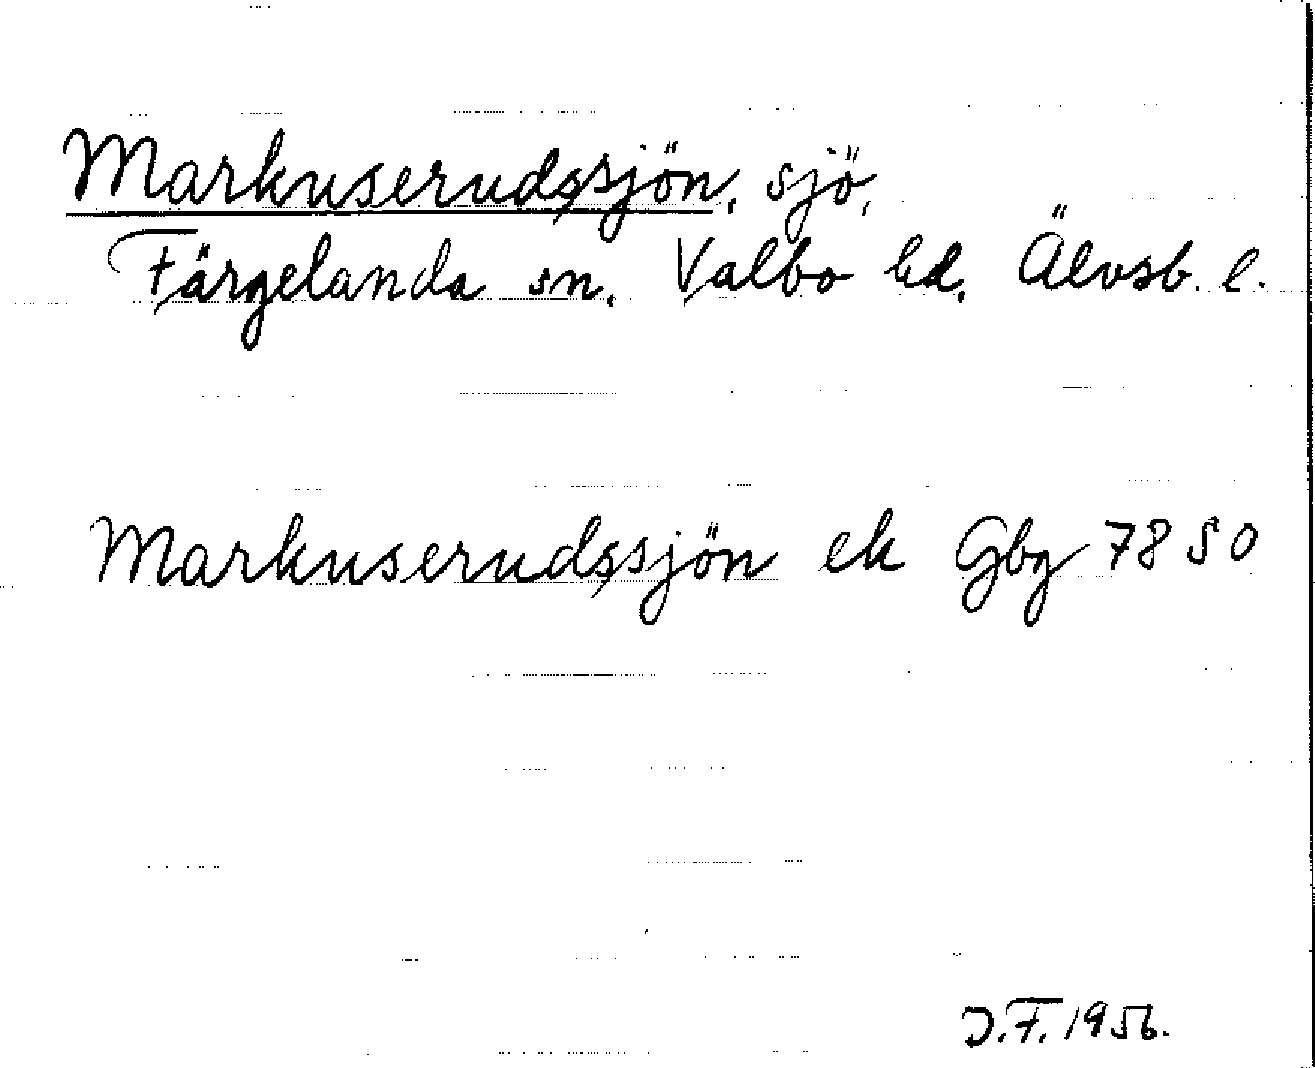 Markuserudssjön, sjö,
Färgelanda sn. Valbo hd. Älvsb. l.
Markuserudssjön ek Gbg 7850
J.F. 1956.